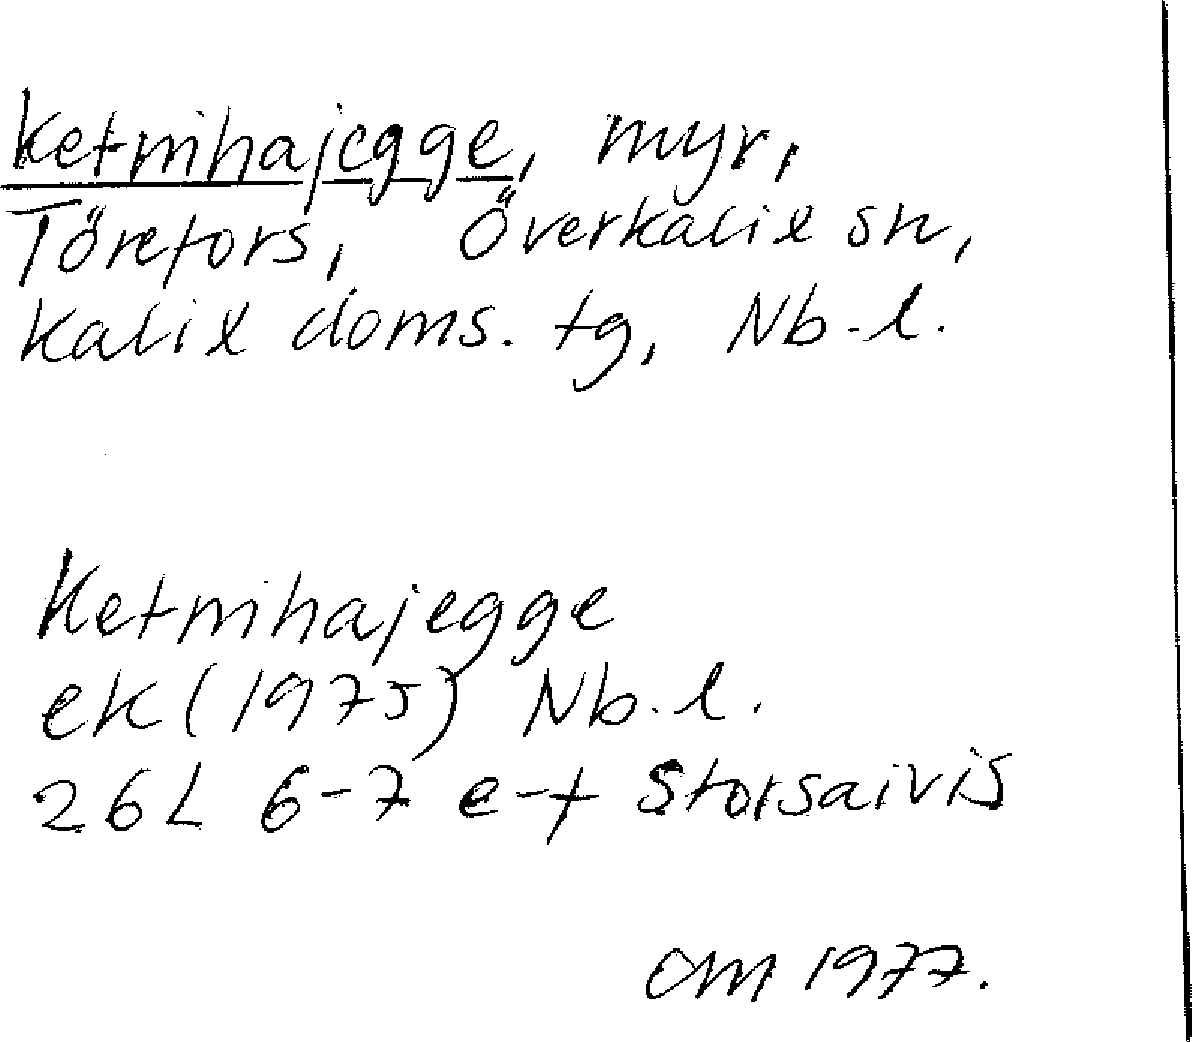 Ketmihajegge, myr,
Törefors, Överkalix sn,
Kalix doms. tg, Nb.l.
Ketmihajegge
ek (1975) Nb.l.
26L 6-7 e-f Storsaivis
CM 1977.